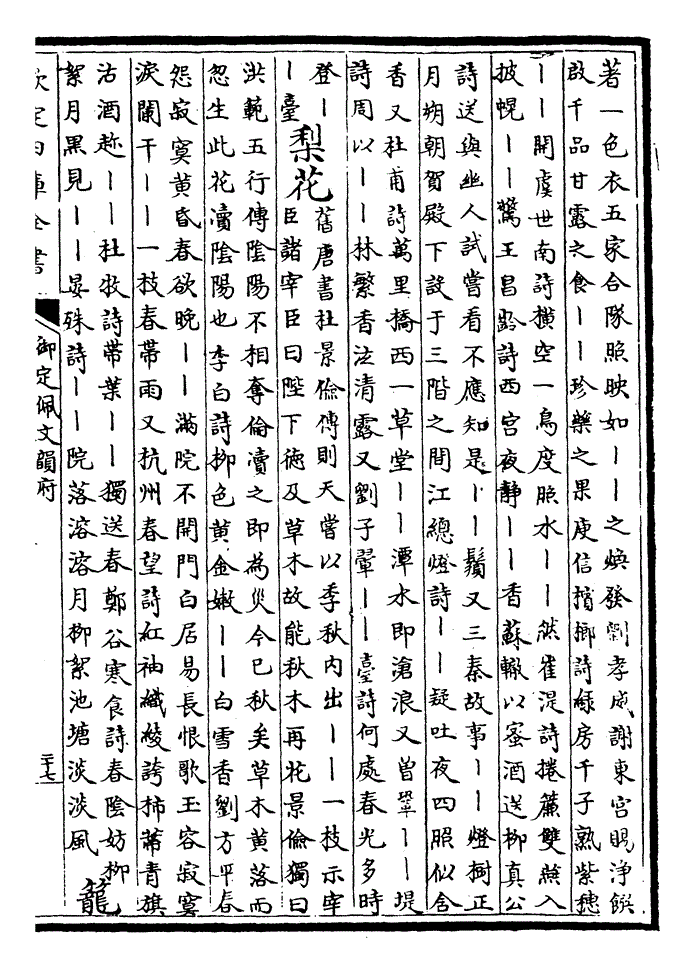 著一色衣五家合隊照映如丨丨之煥發劉孝威謝東宮賜淨饌
啟千品甘露之食丨丨珍藥之果庾信檳榔詩綠房千子熟紫穗
丨丨開虞世南詩橫空一鳥度照水丨丨然崔湜詩捲簾雙燕入
披幌丨丨驚王昌齡詩西宮夜靜丨丨香蘇轍以蜜酒送柳真公
詩送與幽人試嘗看不應知是丨丨鬚又三秦故事丨丨燈樹正
月朔朝賀殿下設于三階之間江總燈詩丨丨疑吐夜四照似含
香又杜甫詩萬里橋西一草堂丨丨潭水即滄浪又曾鞏丨丨堤
詩周以丨丨林繁香泫清露又劉子翬丨丨臺詩何處春光多時
登丨
丨臺
梨花
舊唐書杜景儉傳則天嘗以季秋內出丨丨一枝示宰
臣諸宰臣曰陛下德及草木故能秋木再花景儉獨曰
洪範五行傳陰陽不相奪倫瀆之即為災今已秋矣草木黃落而
忽生此花瀆陰陽也李白詩柳色黃金嫩丨丨白雪香劉方平春
怨寂寞黃昏春欲晚丨丨滿院不開門白居易長恨歌玉容寂寞
淚闌干丨丨一枝春帶雨又杭州春望詩紅袖織綾誇柿蒂青旗
沽酒趂丨丨杜牧詩帶葉丨丨獨送春鄭谷寒食詩春陰妨柳
絮月黑見丨丨晏殊詩丨丨院落溶溶月柳絮池塘淡淡風
籠
欽定四庫全書
御定佩文韻府
二十七